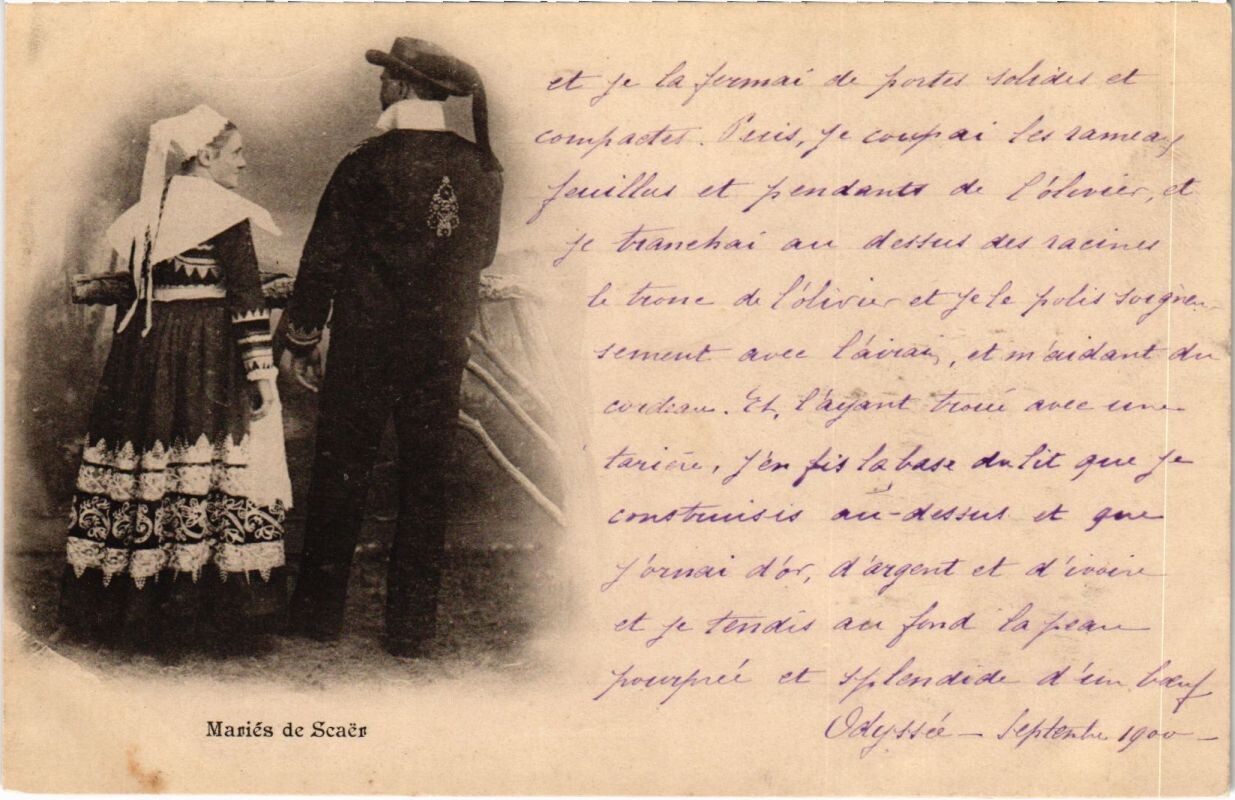 et je la fermai de portes solides et
compactes. Puis, je coupai les rameaux
feuillus et pendants de l'ôlivier, et
je tranchai au dessus des racines
le tronc de l'ôlivier et je le polis soigneu-
sement avec l'airain, et m'aidant du
cordeau. Et, l'ayant troué avec une
tarière, j'en fis la base du lit que je
construisis au-dessus et que
j'ornai d'or, d'argent et d'ivoire
et je tendis au fond la peau
pourprée et splendide d'un bœuf
Odyssée - Septembre 1900 -
Mariés de Scaër